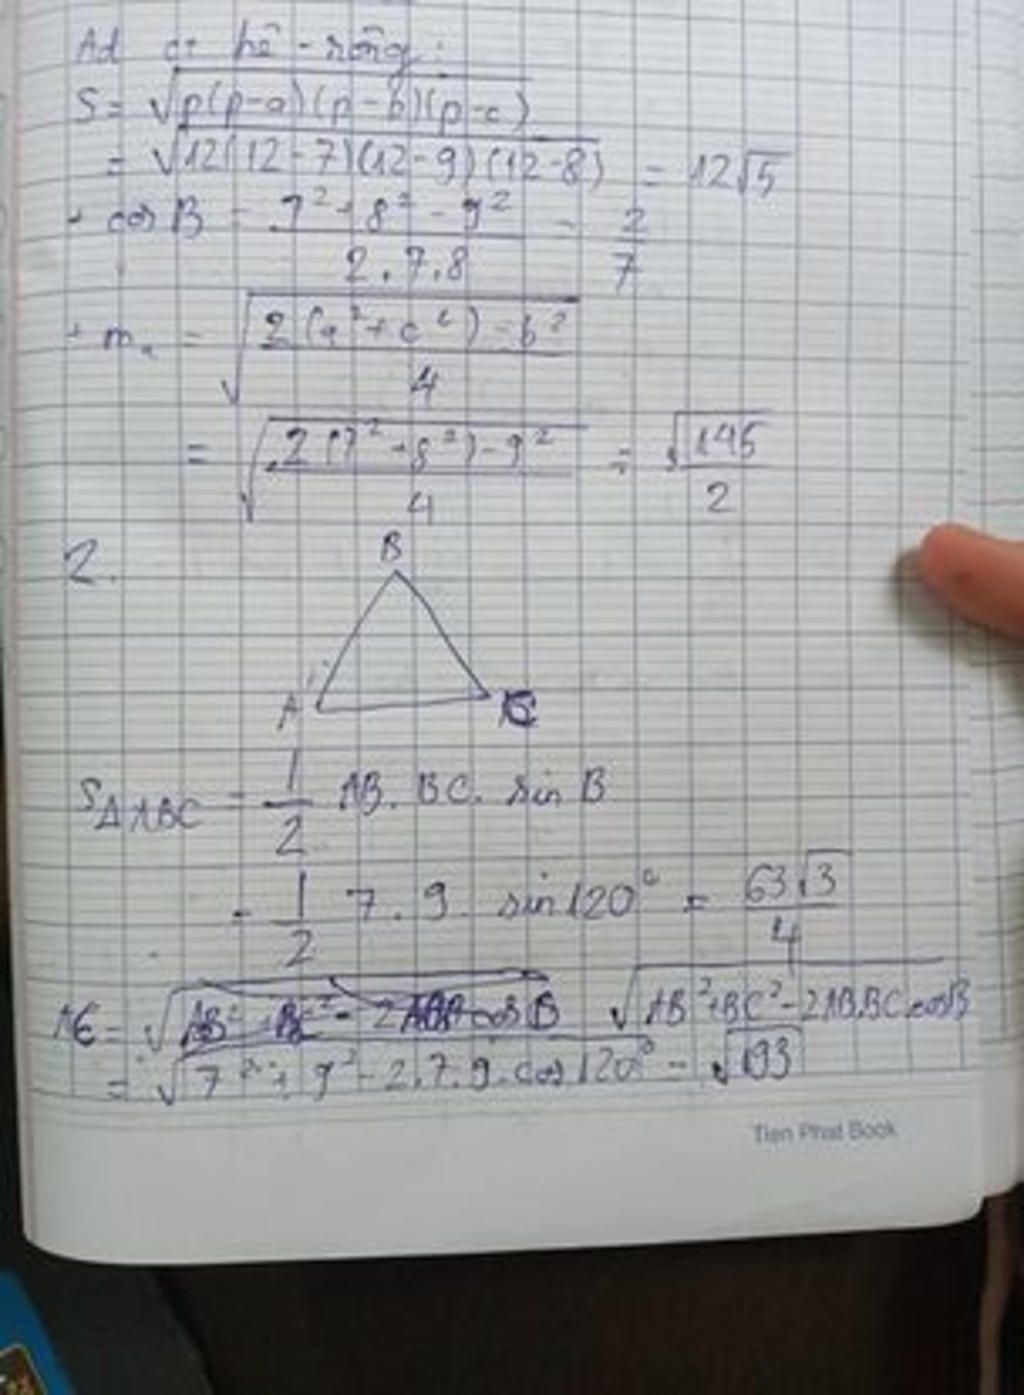 Ad ct hê-rông:
S = √p(p-a)(p-b)(p-c)
= √12(12-7)(12-9)(12-8) = 12√5
+ cos B = 7² + 8² - 9² / 2.7.8 = 2/7
+ mₐ = √(2(a² + c²) - b² / 4)
= √(2(7² + 8²) - 9² / 4) = √145 / 2
2.
B
A C
S△ABC = 1/2 AB. BC. sin B
= 1/2 7.9. sin 120° = 63√3 / 4
AC = √AB²+BC²-2AB.BC.cosB
= √7² + 9² - 2.7.9.cos 120° = √193
Tien Phat Book